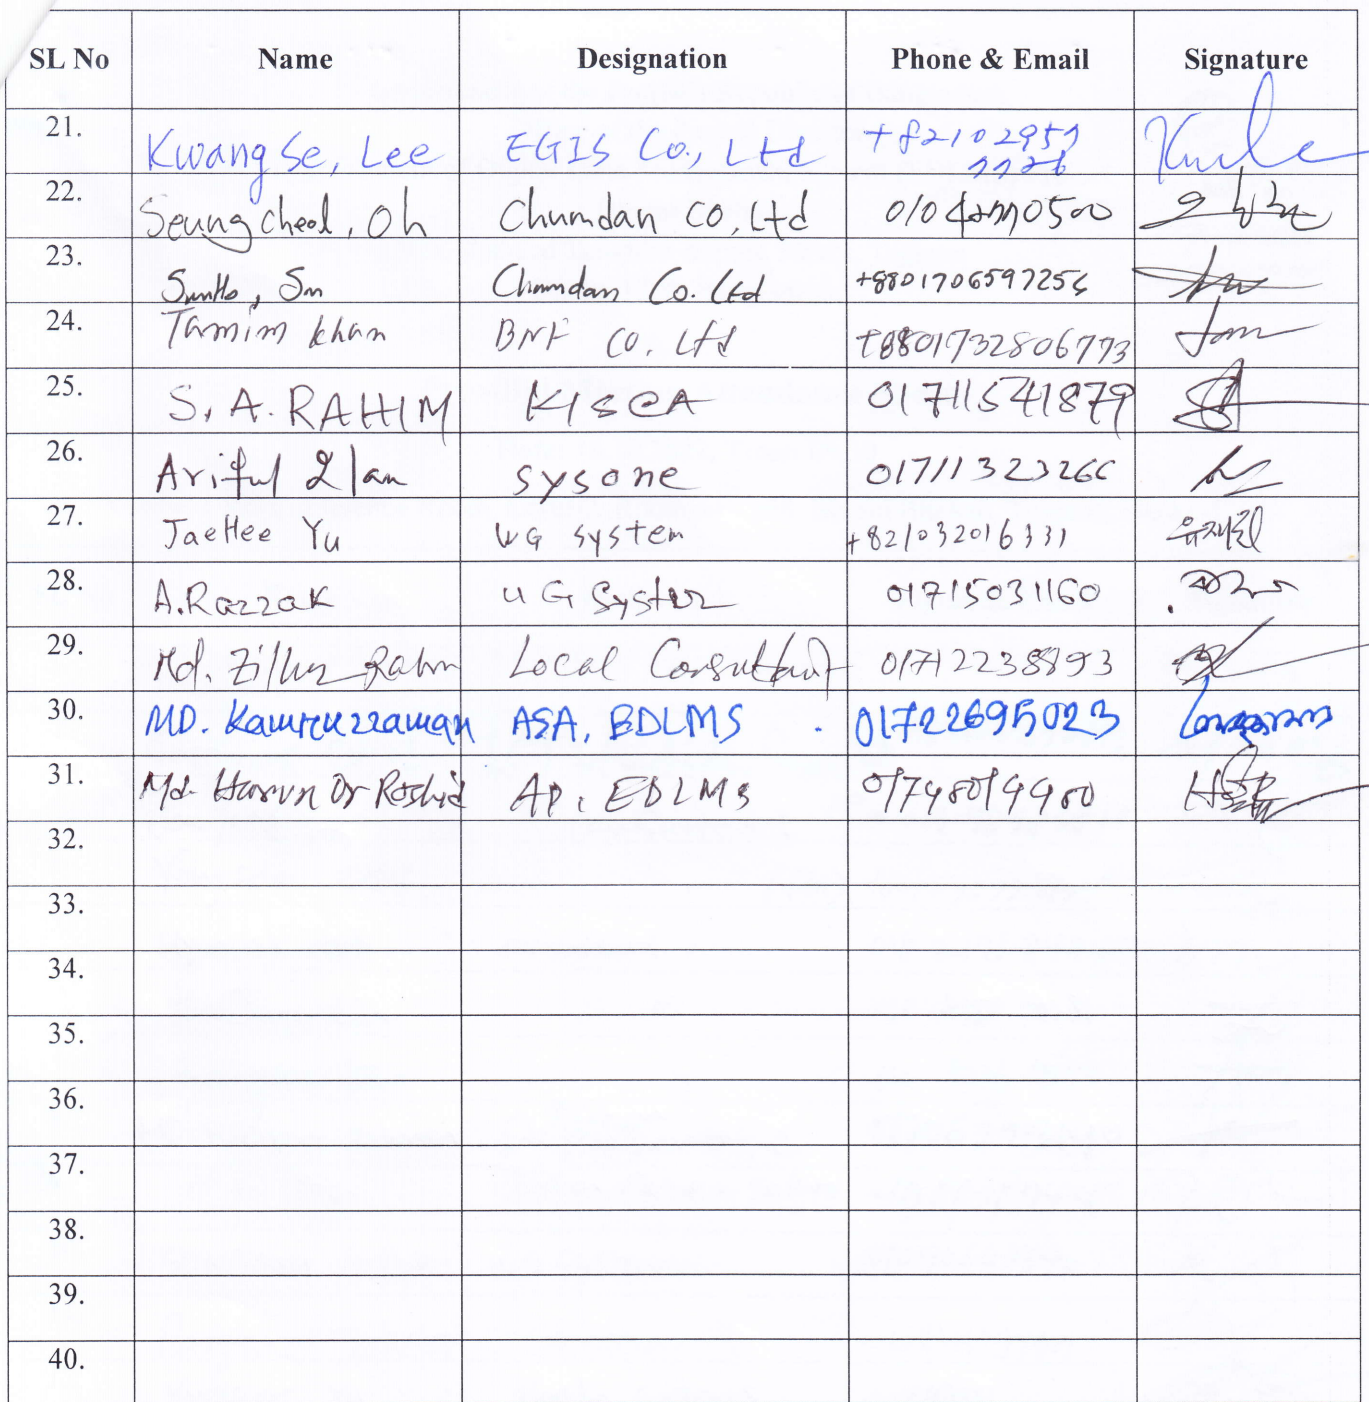 SL No Name Designation Phone & Email Signature
21. Kwang Se, Lee EGIS Co., Ltd +82102957
7726
22. Seung cheol, Oh Chumdan CO, Ltd
23. Chumdan Co. Ltd +8801706597256
24. Tamim khan BNF CO. Ltd +8801732806773
25. S. A. RAHIM 01711541879
26. Ariful sysone 01711323266
27. JaeHee Yu UG System +821032016331 유재희
28. A. Razzak UG System 01715031160
29. Md. Zillur Rahm Local Consultant 01712238893
30. MD. Kamruzzaman ASA, EDLMS 01722695023
31. Md. Harun Or Roshid AP, EDLMS 01748019980
32.
33.
34.
35.
36.
37.
38.
39.
40.